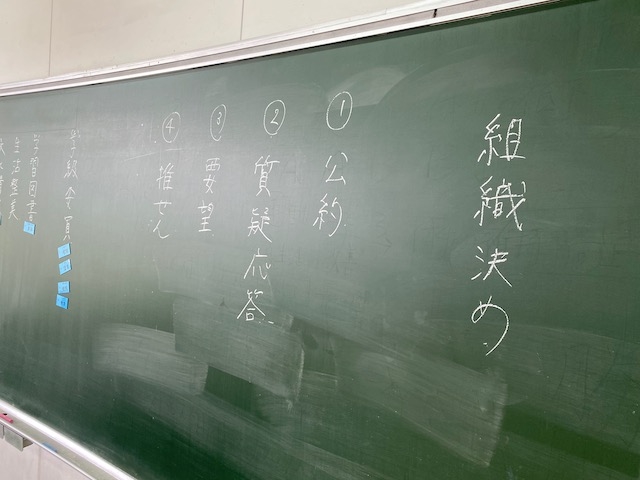 組織決め
①公約
②質疑応答
③要望
④推せん
学級委員
学習図書
生活整美